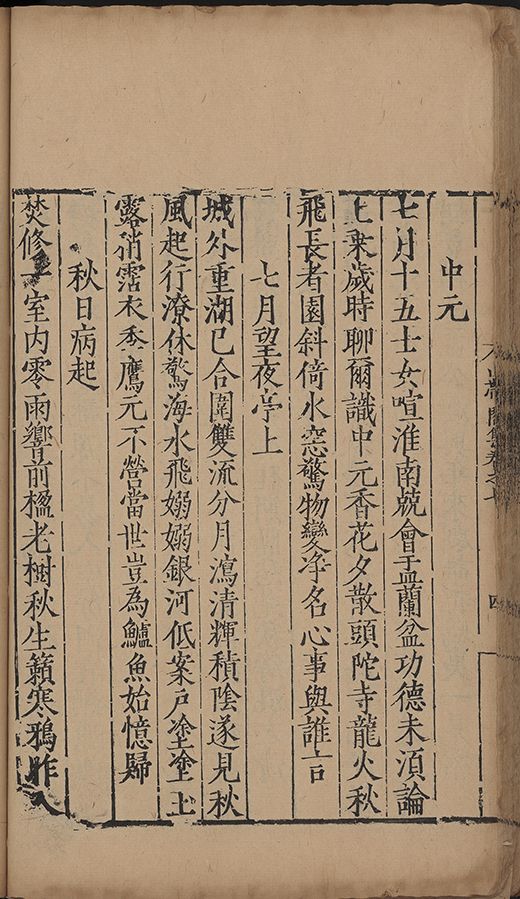 山帶閣集卷之七
四
中元
七月十五士女喧淮南兢會盂蘭盆功德未湏論
上乗歲時聊爾識中元香花夕散頭陀寺龍火秋
飛長者園斜倚水窓驚物變淨名心事與誰言
七月望夜亭上
城外重湖已合圍雙流分月瀉清輝積陰遂見秋
風起行潦休驚海水飛嫋嫋銀河低案戶塗塗土
露消霑衣季鷹元不營當世豈為鱸魚始憶歸
秋日病起
焚修一室内零雨響前楹老樹秋生籟寒鴉昨